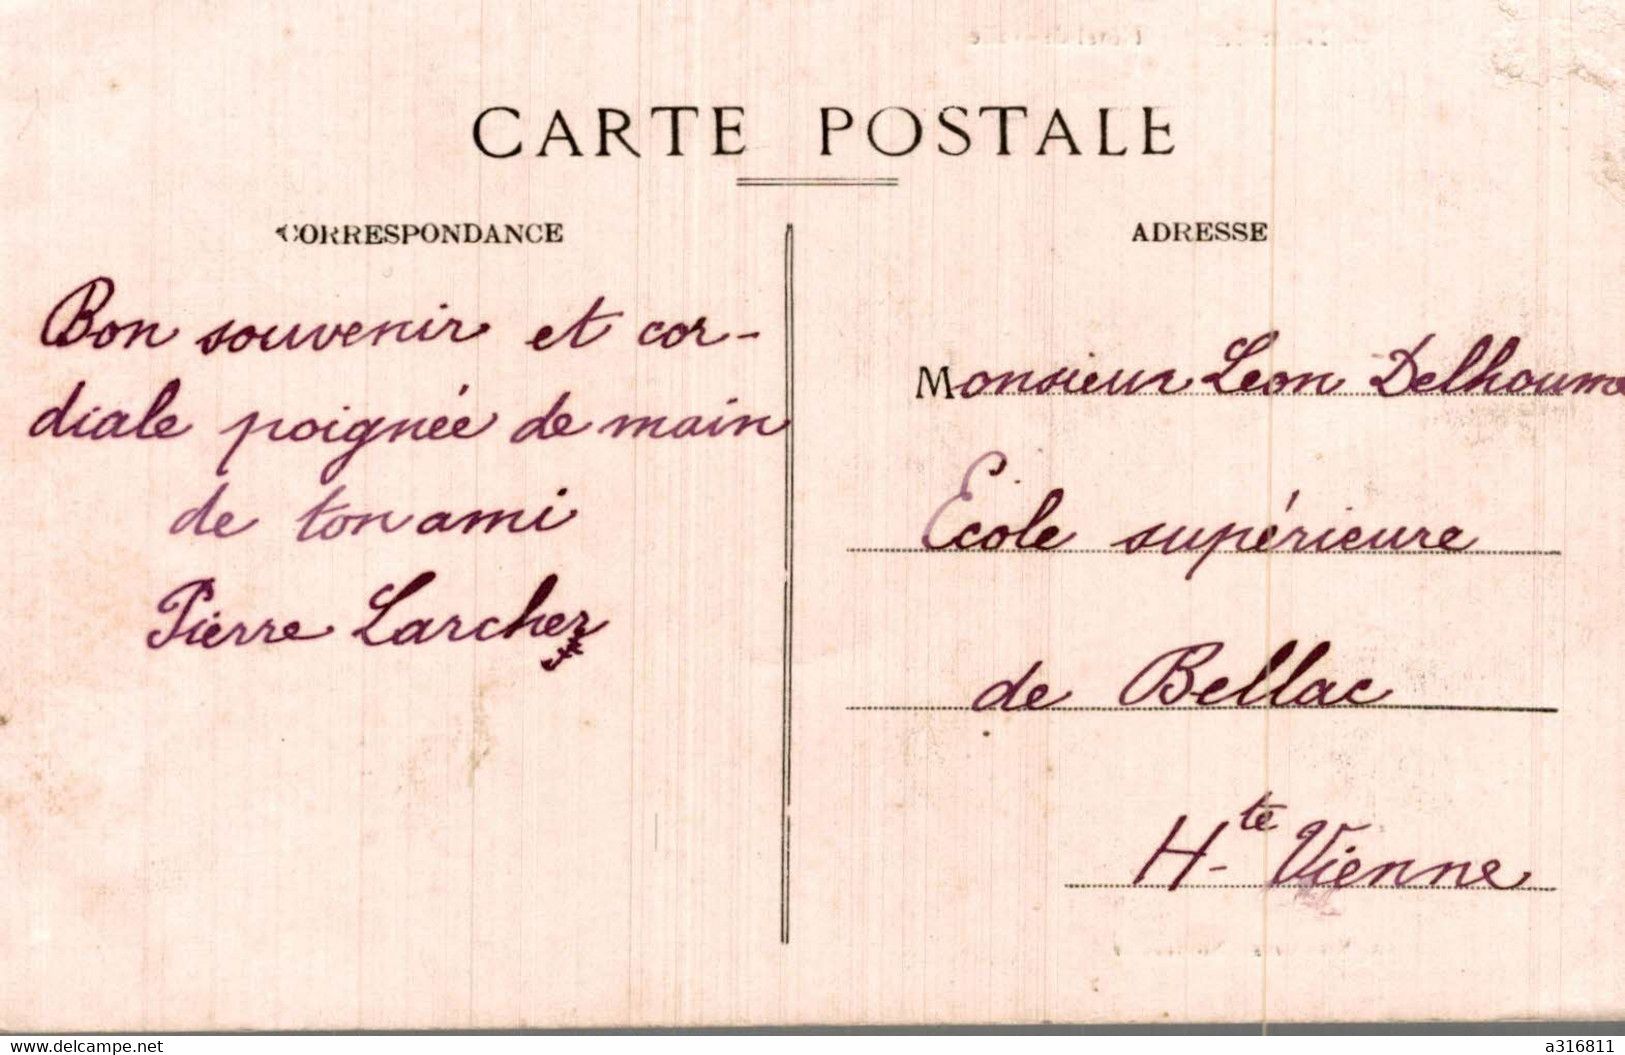 CARTE POSTALE
CORRESPONDANCE
Bon souvenir et cor-
diale poignée de main
de ton ami
Pierre Larcher
ADRESSE
Monsieur Leon Delhoume
Ecole supérieure
de Bellac
Hte Vienne
www.delcampe.net
a316811